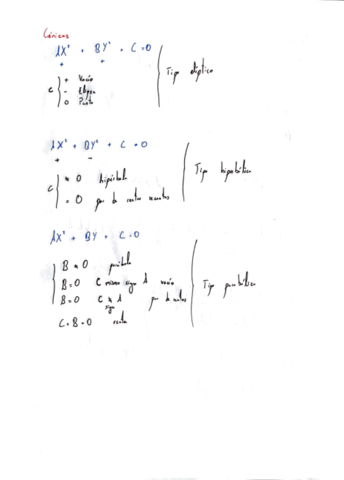 Cónicas
AX² + BY² + C = 0
+ +
C + Vacío
- Elipse
0 Punto
Tipo elíptico
AX² + BY² + C = 0
+ -
C ≠ 0 hipérbola
= 0 par de rectas
Tipo hiperbólico
AX² + BY + C = 0
B ≠ 0 parábola
B = 0 C mismo signo A vacío
B = 0 C ≠ A par de rectas
signo
C = B = 0 recta
Tipo parabólico